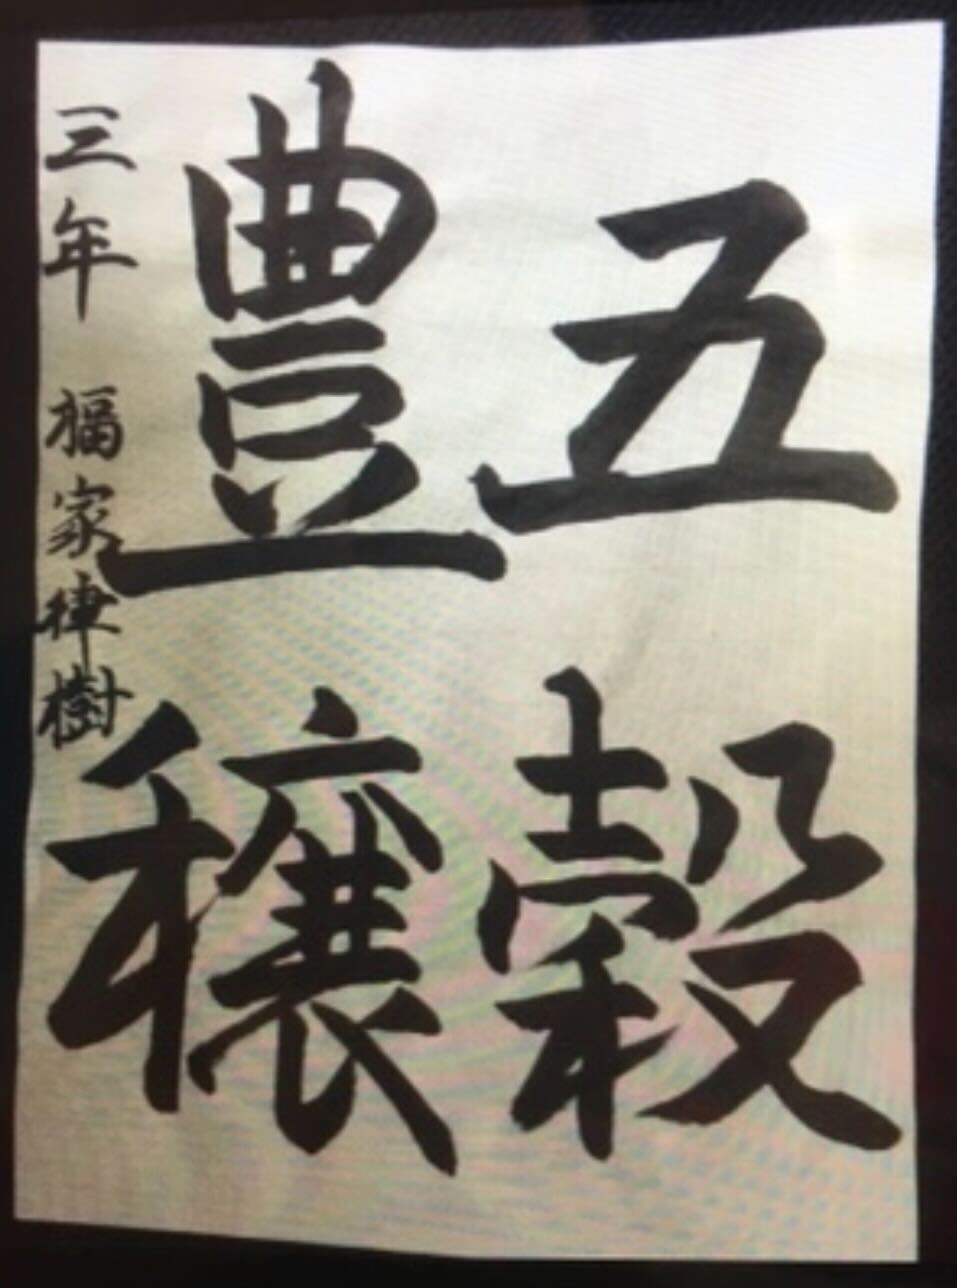 五穀
豊穣
三年 福家律樹